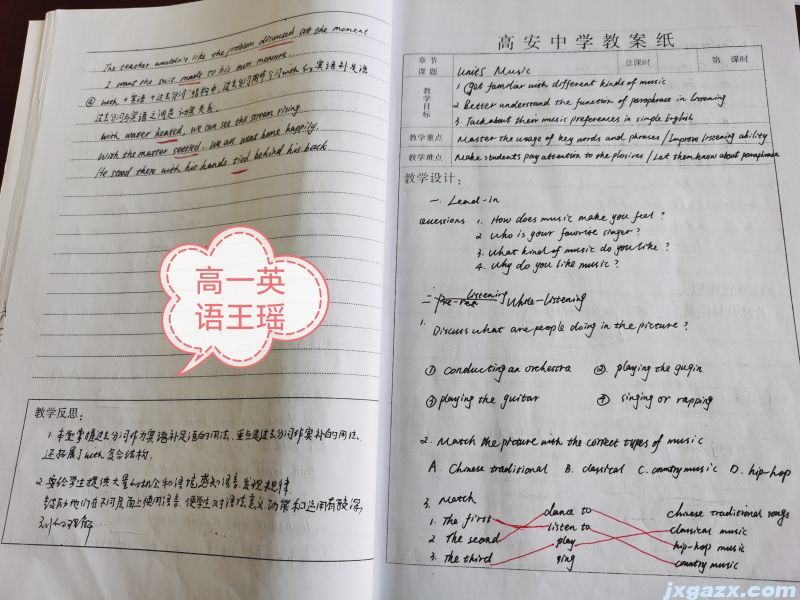 The teacher wouldn't like the problem discussed at the moment
I want the suit made to his own measure.
④ with + 宾语 + 过去分词"结构中,过去分词用作介词with 的宾语补足语
过去分词与宾语之间是动宾关系.
With water heated, we can see the steam rising
With the matter settled, We all went home happily.
He stood there with his hands tied behind his back
高一英
语王瑶
教学反思:
1. 本堂掌握过去分词作为宾语补足语的用法、重点是过去分词作宾补的用法、
还拓展了with复合结构.
2. 要给学生提供大量的机会和语境,感知语言、发现规律.
鼓励他们在不同层面上使用语言、使学生对语法意义、功能和运用有较深
刻的理解
高安中学教案纸
章节
课题
Unit5 Music
总课时
第 课时
教学目标
1. Get familiar with different kinds of music
2. Better understand the function of paraphrase in listening
3. Talk about their music preferences in simple English
教学重点 Master the usage of key words and phrases / Improve listening ability
教学难点 Make students pay attention to the plosives / Let them know about paraphrase
教学设计:
一. Lead-in
Questions 1. How does music make you feel ?
2. Who is your favorite singer?
3. What kind of music do you like ?
4. Why do you like music ?
二. listening While-listening
1. Discuss what are people doing in the picture ?
① conducting an orchestra ② playing the guqin
③ playing the guitar ④ singing or rapping
2. Match the picture with the correct types of music
A. Chinese traditional B. classical C. country music D. hip-hop
3. Match
1. The first dance to Chinese traditional songs
2. The second listen to classical music
3. The third play hip-hop music
sing country music
jxgazx.com